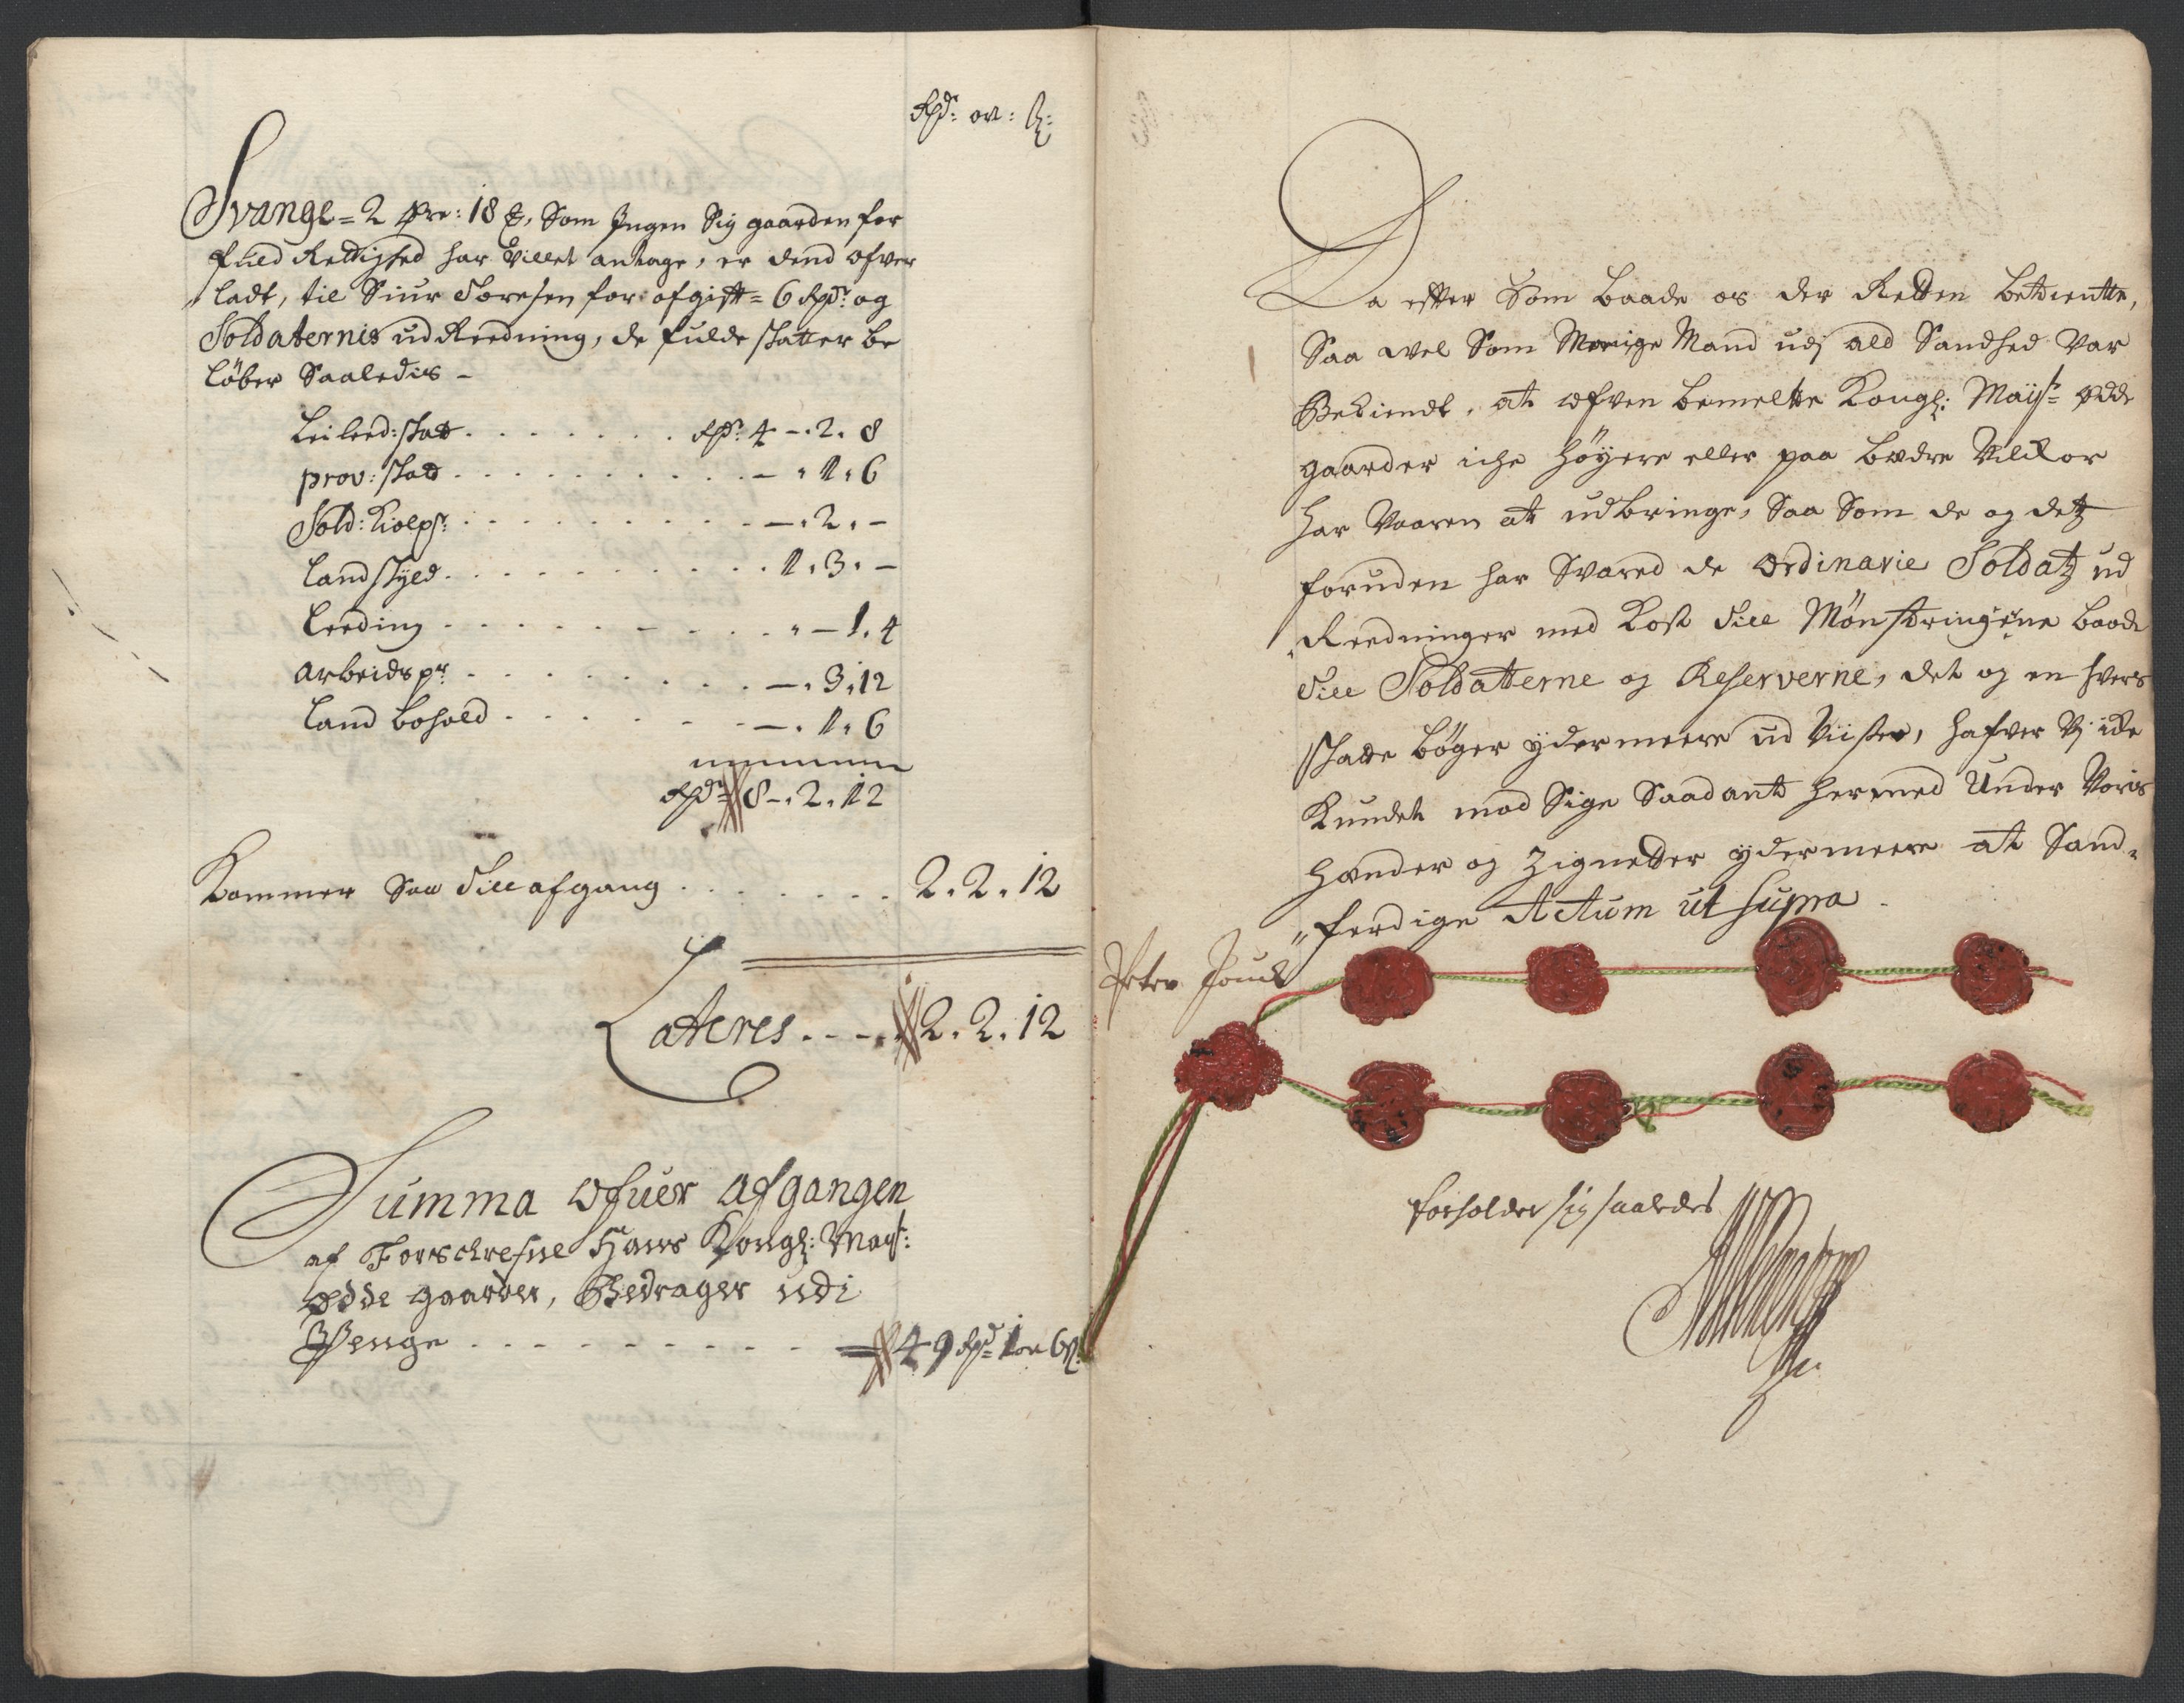 Rdr: ort: ß:
Svange = 2 Pr: 18 ℔, Som Ingen Sig gaarden for
fuld Rettighed har villet antage, er dend ofver
ladt, til Siur Toresen for afgift = 6 Rdr: og
Soldaternis udReedning, de fulde skatter be
løber Saaledis –
Leilend: skatt . . . . . . . Rdr: 4 – . 2. 8
prov: skatt . . . . . . . . . . – . 1. 6
Sold: Kiolepr: . . . . . . . . . . – . 2. –
Landskyld . . . . . . . . . . 1. 3. –
Leeding . . . . . . . . . . – 1. 4
Arbeidspr: . . . . . . . . . – . 3. 12
Land bohold . . . . . . . . – . 1. 6
Rdr: 8 – . 2. 12
Kommer Saa Till afgang . . . . . . . 2. 2. 12
Lateres . . . . 2. 2. 12
Summa ofuer Afgangen
af Forschrefne Hans Kongl: Mayst:
ødde gaarder, Bedrager udi
Penge . . . . . . . . . = 49 Rdr 1 ort 6 ß:
Da effter Som baade os der Retten betiente,
Saa wel Som Menige Mand udj ald Sandhed var
Bekiendt, at ofven bemelte Kongl: Mayst: ødde
gaarder iche høyere eller paa bædre Vilkor
har Vaaren at udbringe, Saa Som de og det
foruden har Svared de Ordinarie Soldatz ud
Reedninger med Kost Till Mønstringene baade
Till Soldatterne og Reserverne, det og en hvers
Skatte bøger ydermeere ud Viiser, hafver Vj ike
Kundet mod Sige Saadant hermed Under Voris
hænder og Zignetter ydermeere at Sand
ferdige Actum ut Supra –
Peter
forholder sig saaledes